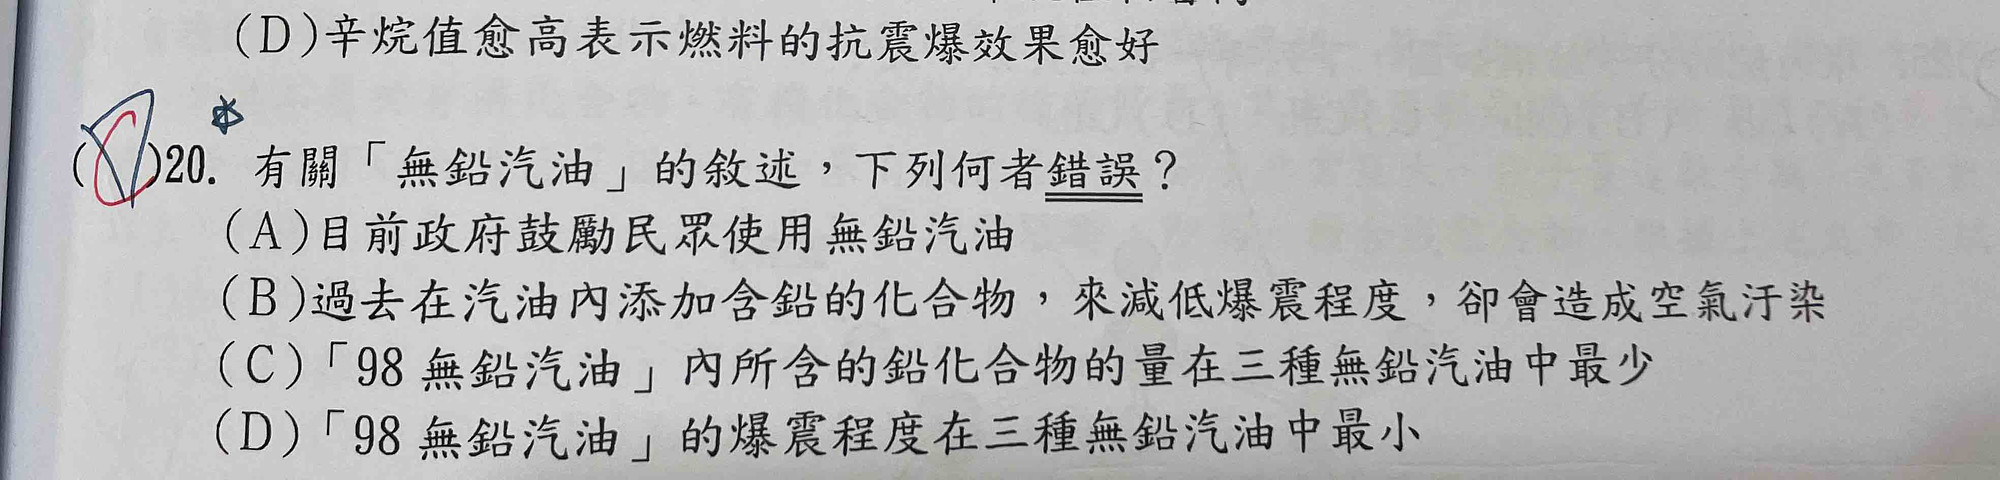 (D)辛烷值愈高表示燃料的抗震爆效果愈好
( C )20. 有關「無鉛汽油」的敘述，下列何者錯誤？
(A)目前政府鼓勵民眾使用無鉛汽油
(B)過去在汽油內添加含鉛的化合物，來減低爆震程度，卻會造成空氣汙染
(C)「98 無鉛汽油」內所含的鉛化合物的量在三種無鉛汽油中最少
(D)「98 無鉛汽油」的爆震程度在三種無鉛汽油中最小